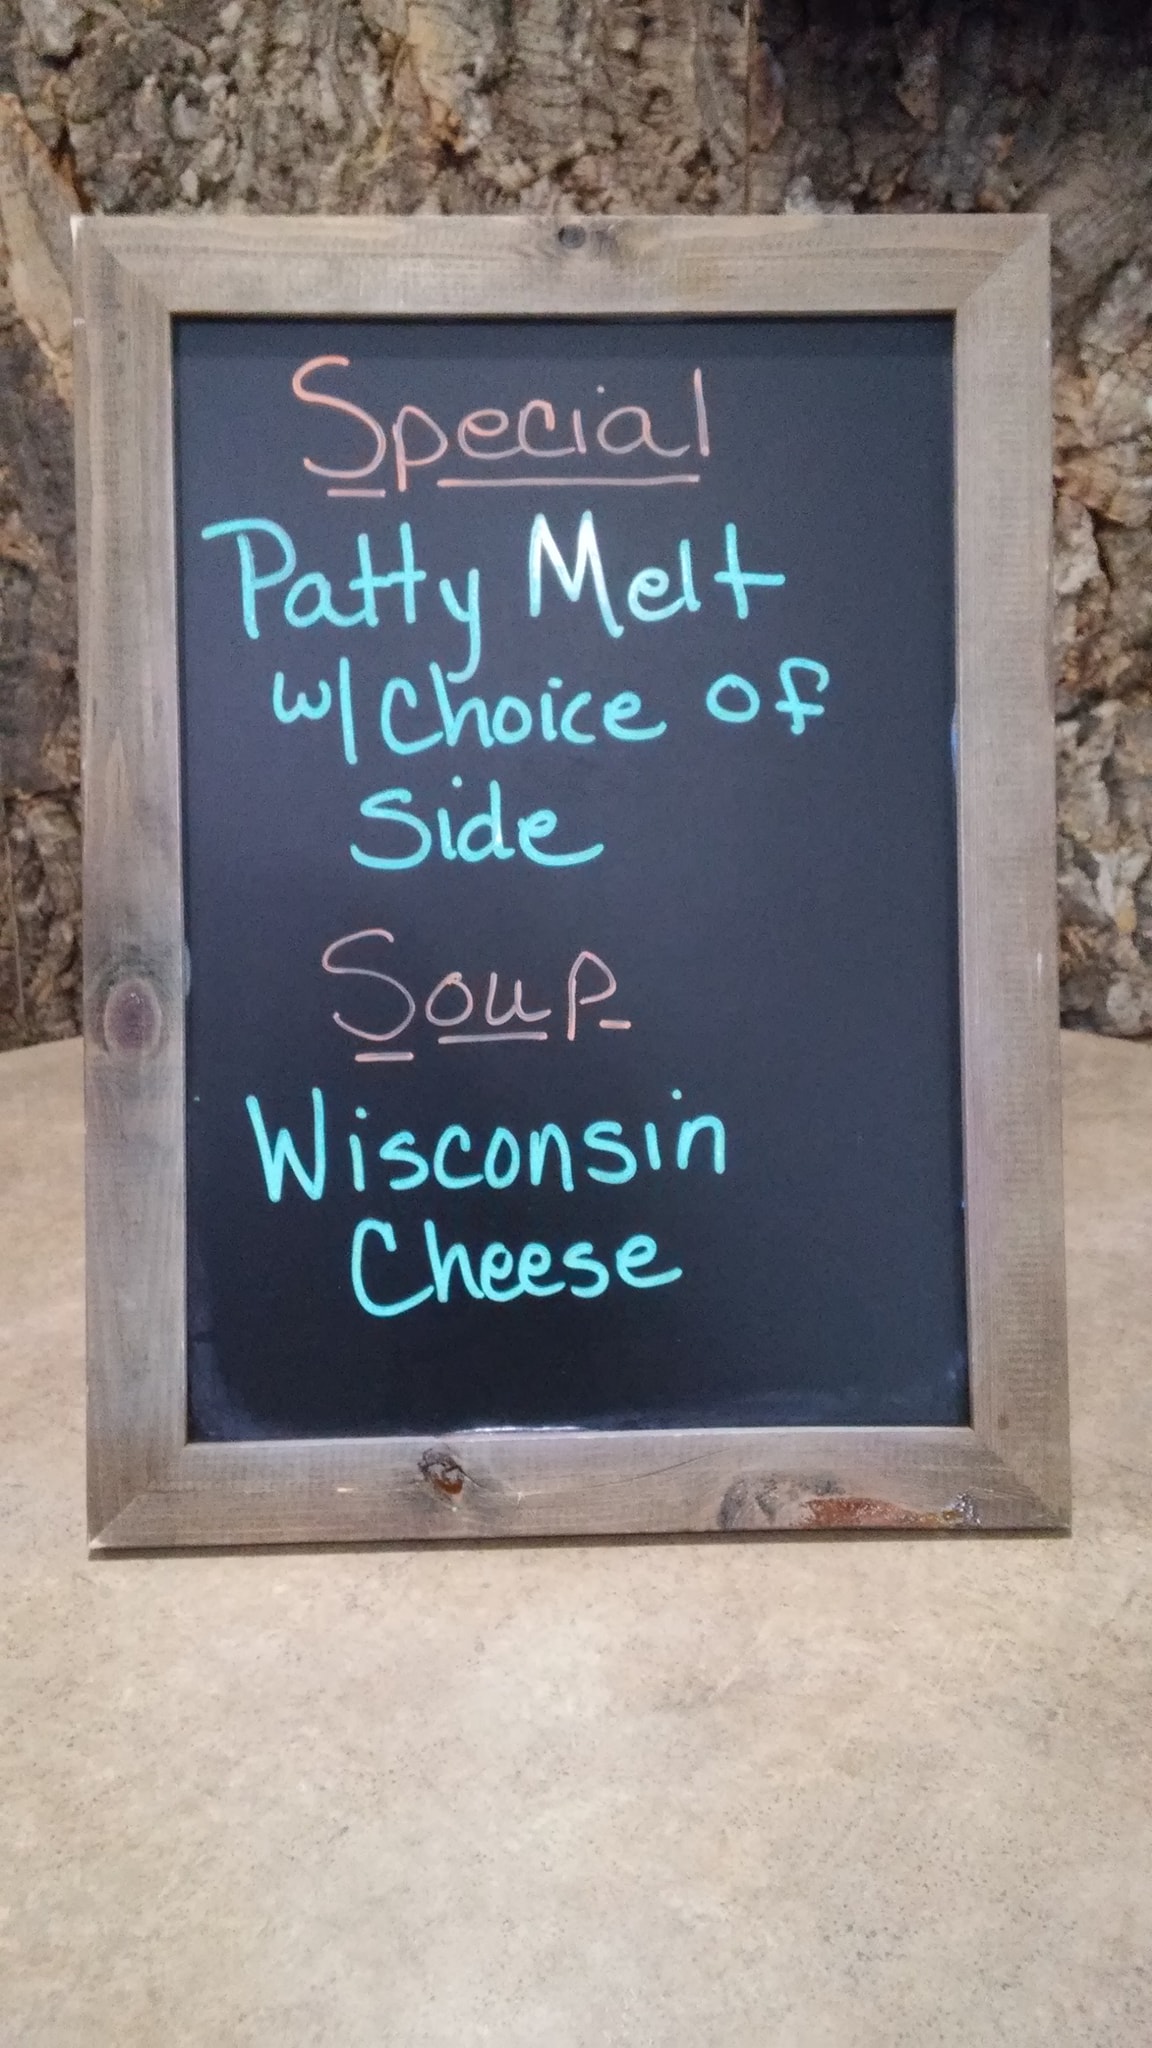 Special
Patty Melt
w/ Choice of
Side
Soup
Wisconsin
Cheese